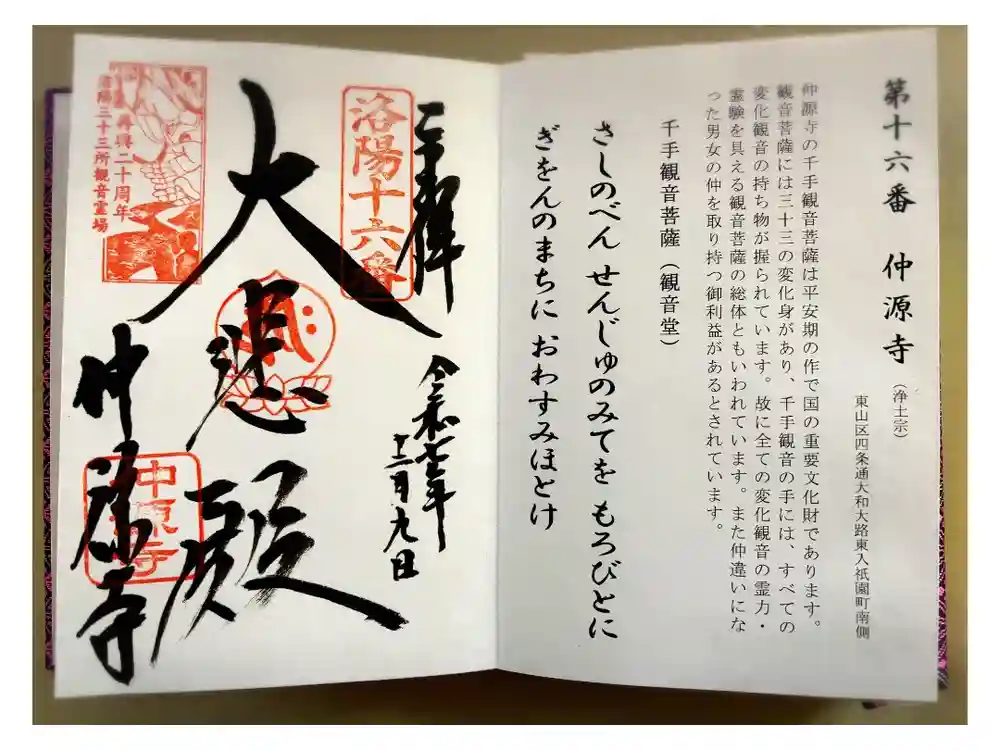 第十六番 仲源寺(浄土宗)
東山区四条通大和大路東入祇園町南側
仲源寺の千手観音菩薩は平安期の作で国の重要文化財であります。
観音菩薩には三十三の変化身があり、千手観音の手には、すべての
変化観音の持ち物が握られています。故に全ての変化観音の霊力・
霊験を具える観音菩薩の総体ともいわれています。また仲違いにな
った男女の仲を取り持つ御利益があるとされています。
千手観音菩薩(観音堂)
さしのべん せんじゅのみてを もろびとに
ぎをんのまちに おわすみほとけ
奉拝
洛陽十六番
令和七年
十二月九日
大悲殿
再興二十周年
洛陽三十三所観音霊場
仲源寺
仲源寺